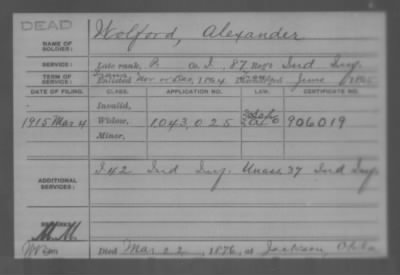 DEAD
NAME OF SOLDIER: Wolford, Alexander
SERVICE: Late rank, P. Co. I, 87 Reg't Ind Inf.
TERM OF SERVICE: Enlisted Nov or Dec, 1864 June 1865
DATE OF FILING. CLASS. APPLICATION NO. LAW. CERTIFICATE NO.
Invalid,
1915 Mar 4 Widow, 1,043,025 906019
Minor,
ADDITIONAL SERVICES: I 42 Ind Inf. Unass 37 Ind Inf
REMARKS
Died Mar 22, 1876, at Jackson,